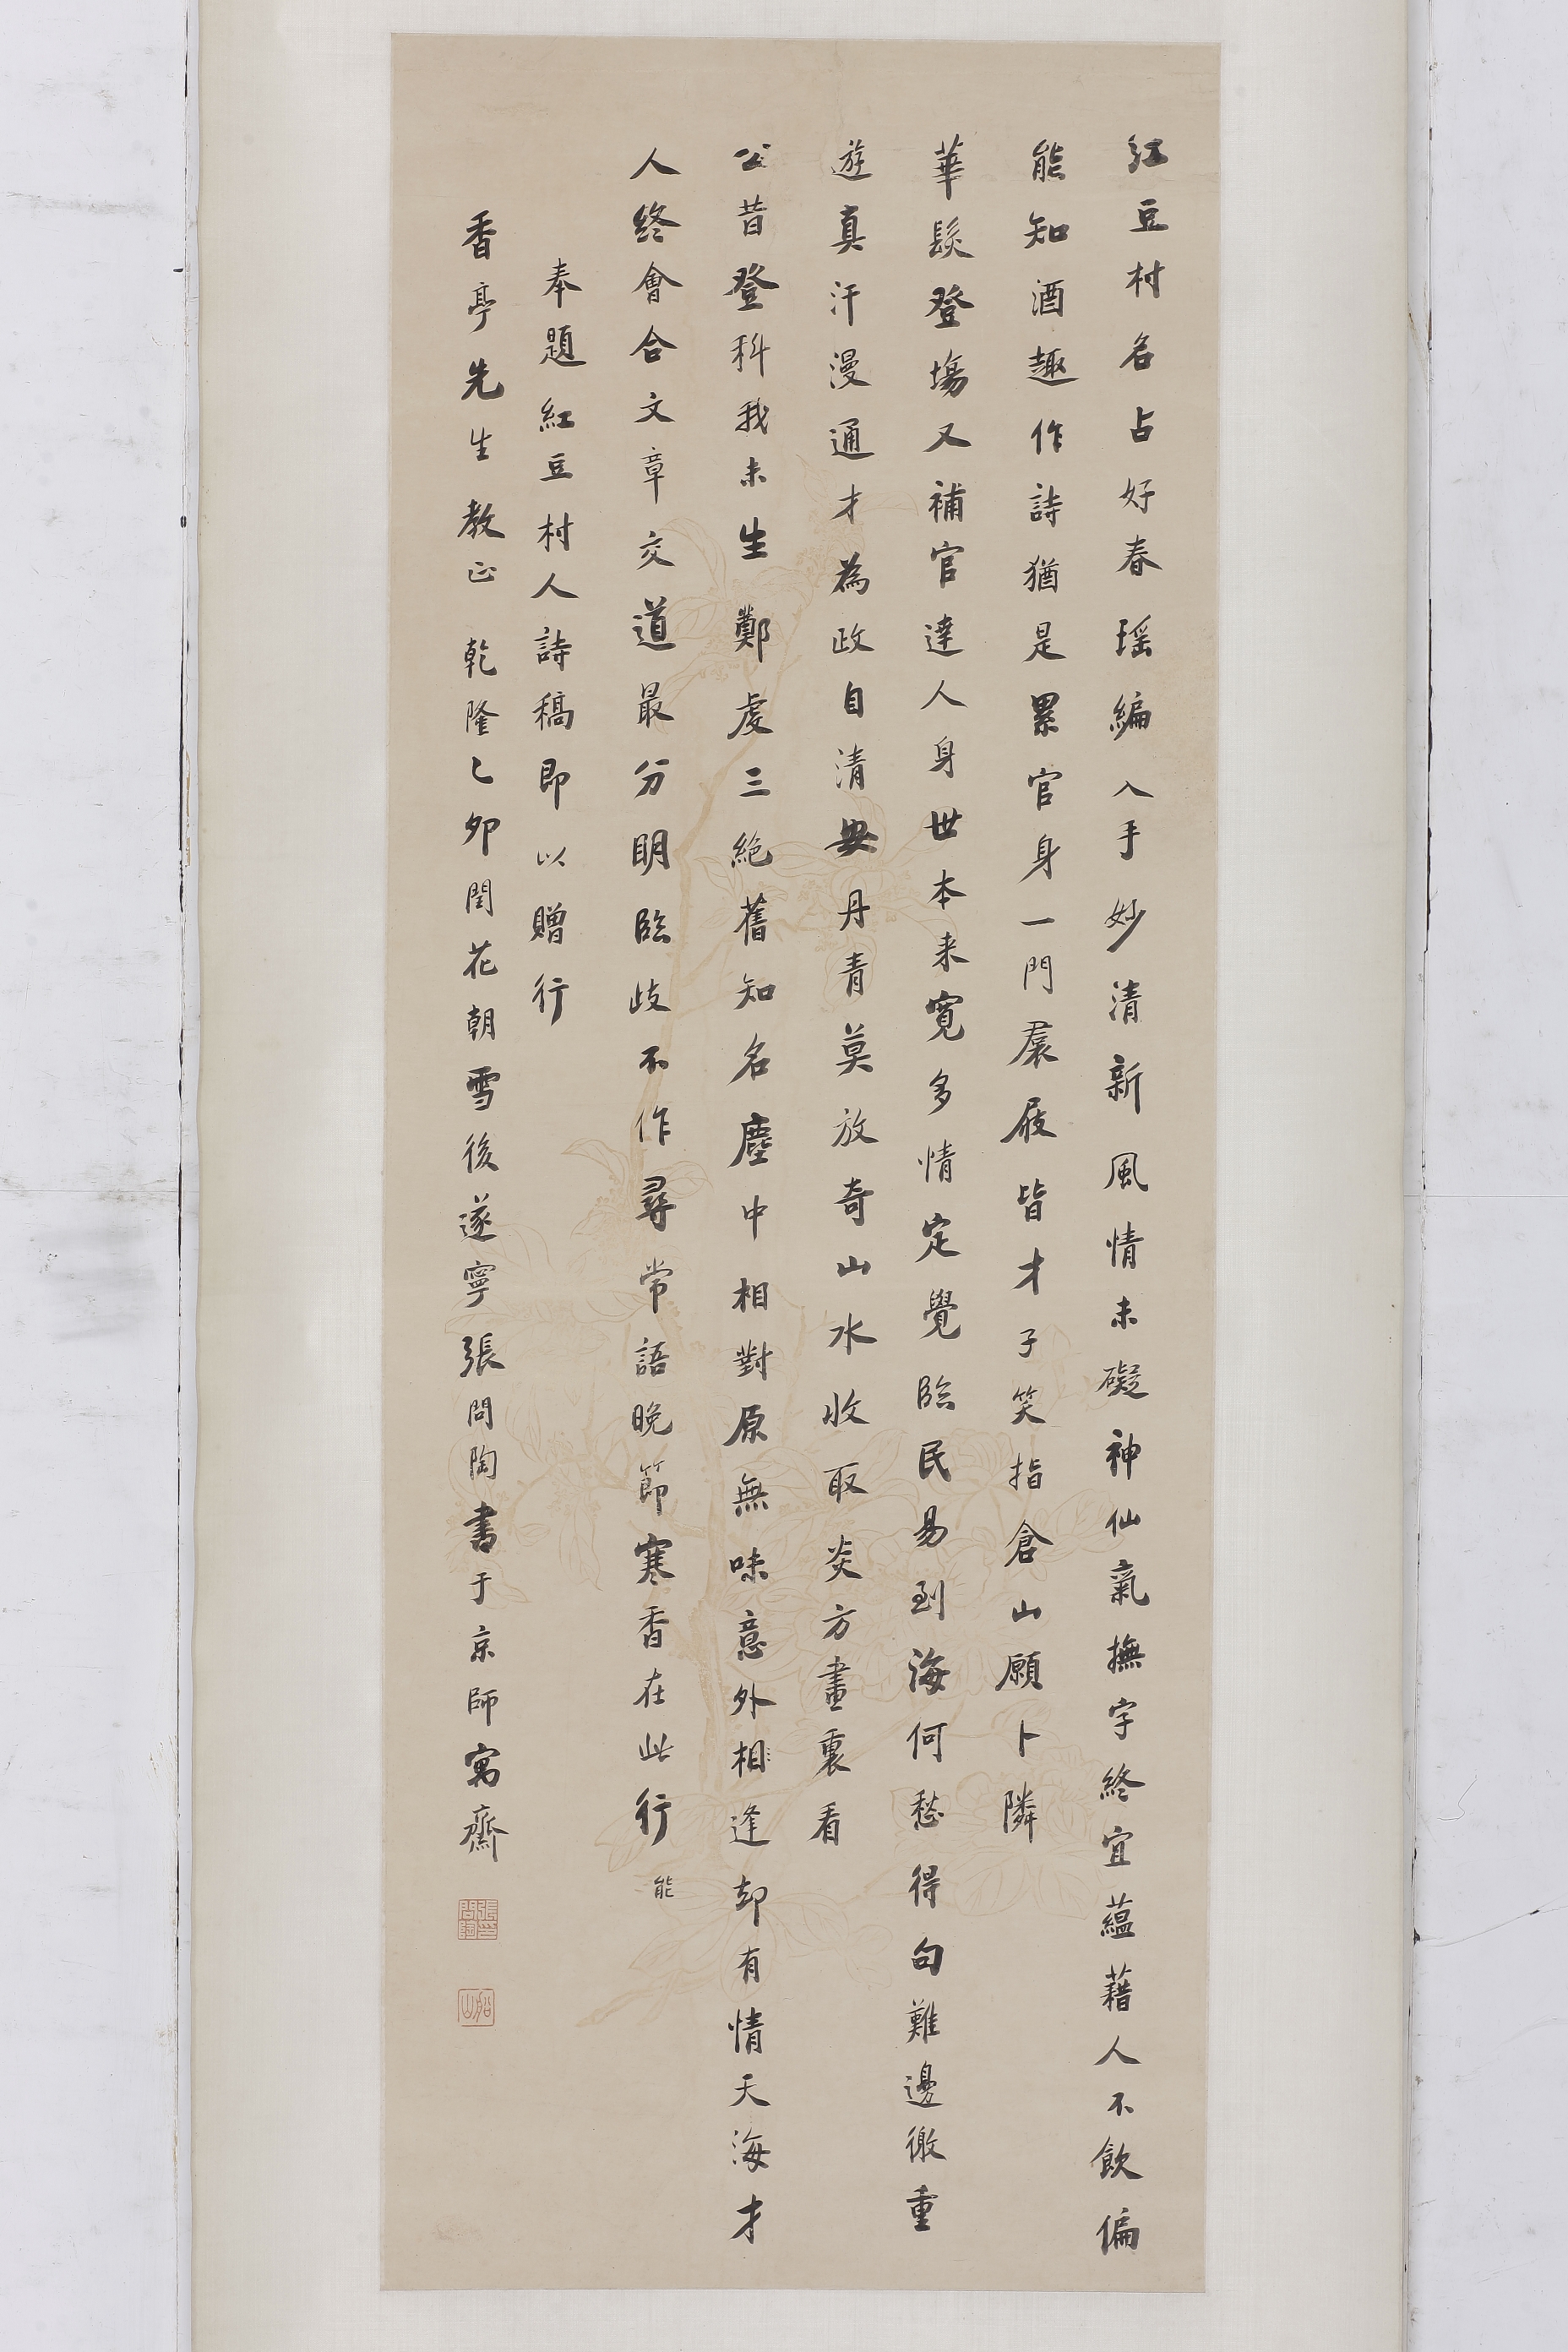 紅豆村名占好春瑶編入手妙清新風情未礙神仙氣撫字終宜蘊藉人不飲偏
能知酒趣作詩猶是累官身一門羣屐皆才子笑指倉山願卜隣
華髮登塲又補官達人身世本来寬多情定覺臨民易到海何愁得句難邊徼重
遊真汗漫通才為政自清安丹青莫放奇山水收取炎方畫裏看
公昔登科我未生鄭虔三絕舊知名塵中相對原無味意外相逢却有情天海才
人終會合文章交道最分明臨歧不作尋常語晚節寒香在此行
能
奉題紅豆村人詩稿即以贈行
香亭先生教正 乾隆乙卯閏花朝雪後遂寧張問陶書于京師寓齋
張問陶印
船山